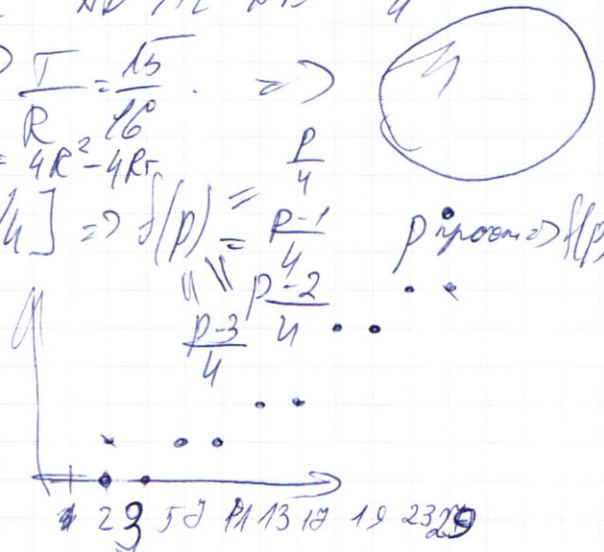 r/R = 15/16 . =>
= 4R² - 4Rr
/4] => f(p) = p/4
= p-1/4
p-2/4
p-3/4
p прост => f(p)
1 2 3 5 7 11 13 17 19 23 29